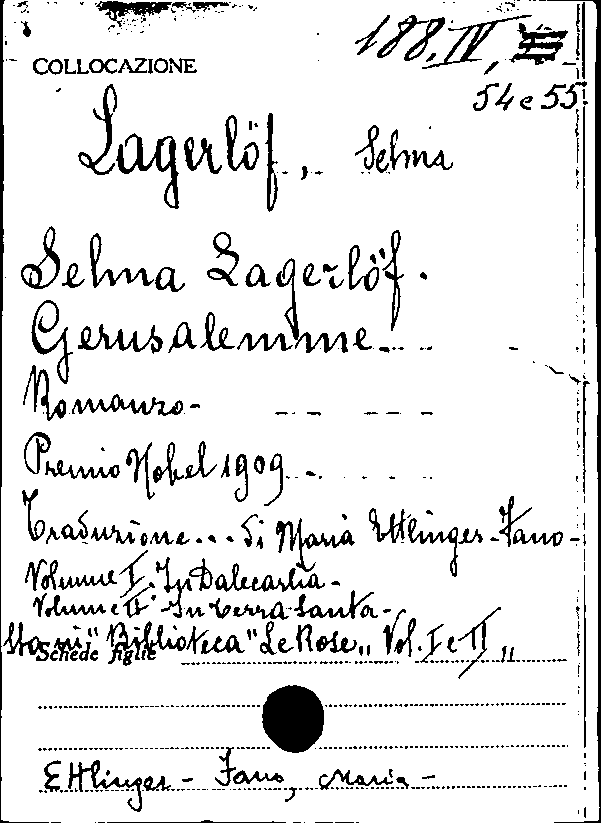 COLLOCAZIONE
188.IV,
54 e 55
Lagerlöf, Selma
Selma Lagerlöf.
Gerusalemme
Romanzo-
Premio Nobel 1909
Traduzione... di Maria Ettlinger-Fano-
Volume I. In Dalecarlia-
Volume II. In terra Santa-
"Biblioteca "Le Rose" Vol. I e II"
Schede figlie
Ettlinger-Fano, Maria-